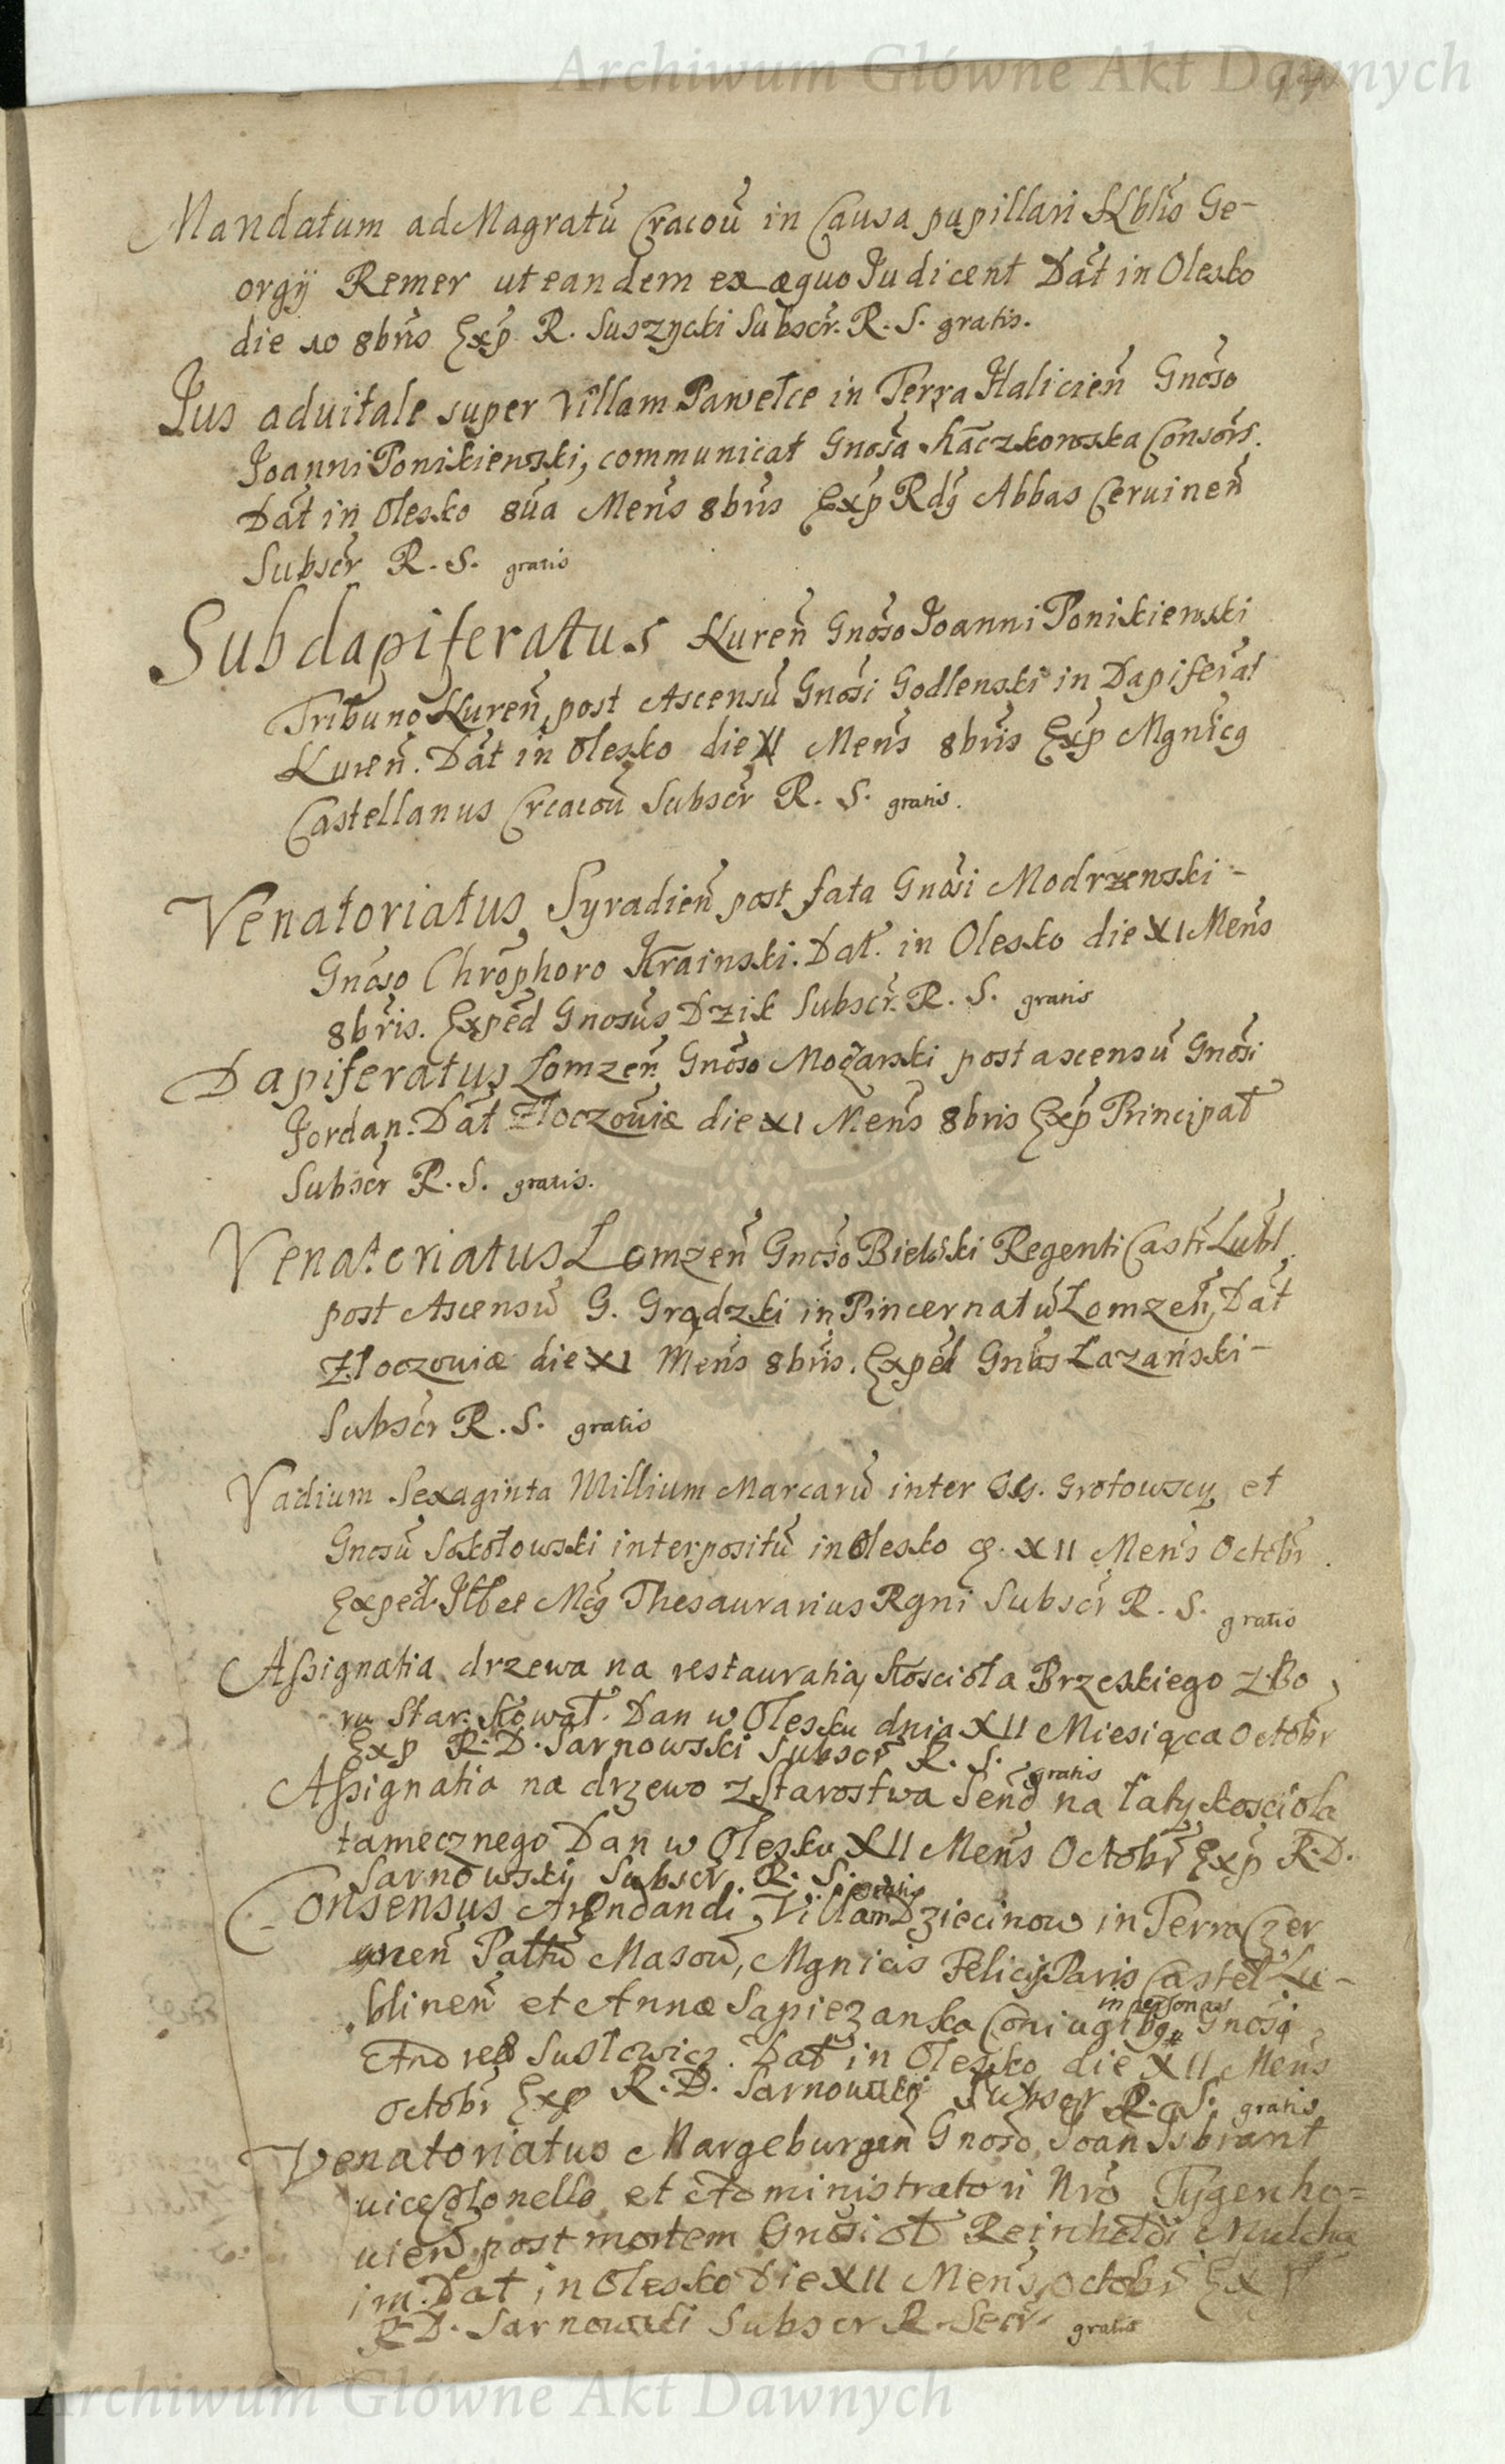 Archiwum Główne Akt Dawnych
Mandatum ad Magratū Cracoū in Causa pupillari Ge-
orgÿ Remer ut eandem ex æquo Judicent Dāt in Olesko
die 10 8brīs Exp̄ R. Suszycki Subscr̄. R. S. gratis.
Jus aduitale super villam Pawełce in Terra Halicień Gnōso
Joanni Ponikiewski, communicat Gnōsa Kaczkowska Consōrs.
Dāt in Olesko 8ua Meñs 8brīs Exp̄ Rdg Abbas Ceruineñ
Subscr̄ R. S. gratis
Subdapiferatus Lureñ Gnōso Joanni Ponikiewski
Tribuno Lureñ, post Ascensū Gnōsi Godlewski in Dapiferat
Lureñ. Dāt in Olesko die XI Meñs 8brīs Exp̄ Mgnīcg
Castellanus Crcacoū Subscr̄ R. S. gratis.
Venatoriatus Syradieñ post fata Gnōsi Modrzewski -
Gnōso Chrōphoro Krainski. Dat. in Olesko die XI Meñs
8brīs. Expēd Gnosūs Dzik Subscr̄. R. S. gratis
Dapiferatus Łomzeñ Gnōso Modzarski post ascensū Gnōsi
Jordan. Dāt Złoczouiæ die XI Meñs 8brīs Exp̄ Principat
Subscr̄ R. S. gratis.
Venatoriatus Łomzeñ Gnōso Bielski Regenti Castr̄ Lubl.
post Ascensū G. Grądzki in Pincernatū Łomzeñ, Dāt
Złoczouiæ die XI Meñs 8brīs. Expēd Gnūs Łazański -
Subscr̄ R. S. gratis
Vadium Sexaginta Millium Marcarū inter GG. Grotowscy et
Gnosū Sokołowski interpositū in Olesko XII Meñs Octobr̄.
Expēd. Mcg Thesaurarius Rgnī Subscr̄ R. S. gratis
Assignatia drzewa na restauratią kościoła Brzeskiego z Bo
ru Star. Kował. Dan w Olesku dnia XII Miesiąca Octobr̄
Exp R. D. Sarnowski Subscr̄ R. S. gratis
Assignatia na drzewo z Starostwa Send na łaty kościoła
tamecznego Dan w Olesku XII Meñs Octobr̄ Exp̄ R. D.
Sarnowski Subscr̄ R. S. gratis
Consensus Arendandi Villam Dziecinow in Terra Czer
Palttū Masoū, Mgnicis Felici Paris Castel Lu-
blineñ et Annæ Sapiezanka Coniugibg in personas Gnōsi
Suslowicz. Dat in Olesko die XII Meñs
Octobr̄ Exp R. D. Sarnowski Subscr R. S. gratis
Venatoriatus Margeburgeñ Gnoso Joan Isbrant
uice Colonello et Administratori Nrō Tygenho=
uieñ post mortem Gnōsi ol Reinholdi
im. Dat in Olesko Die XII Meñs Octobr̄ Exp
R. D. Sarnowski Subscr R. Secr gratis
Archiwum Główne Akt Dawnych